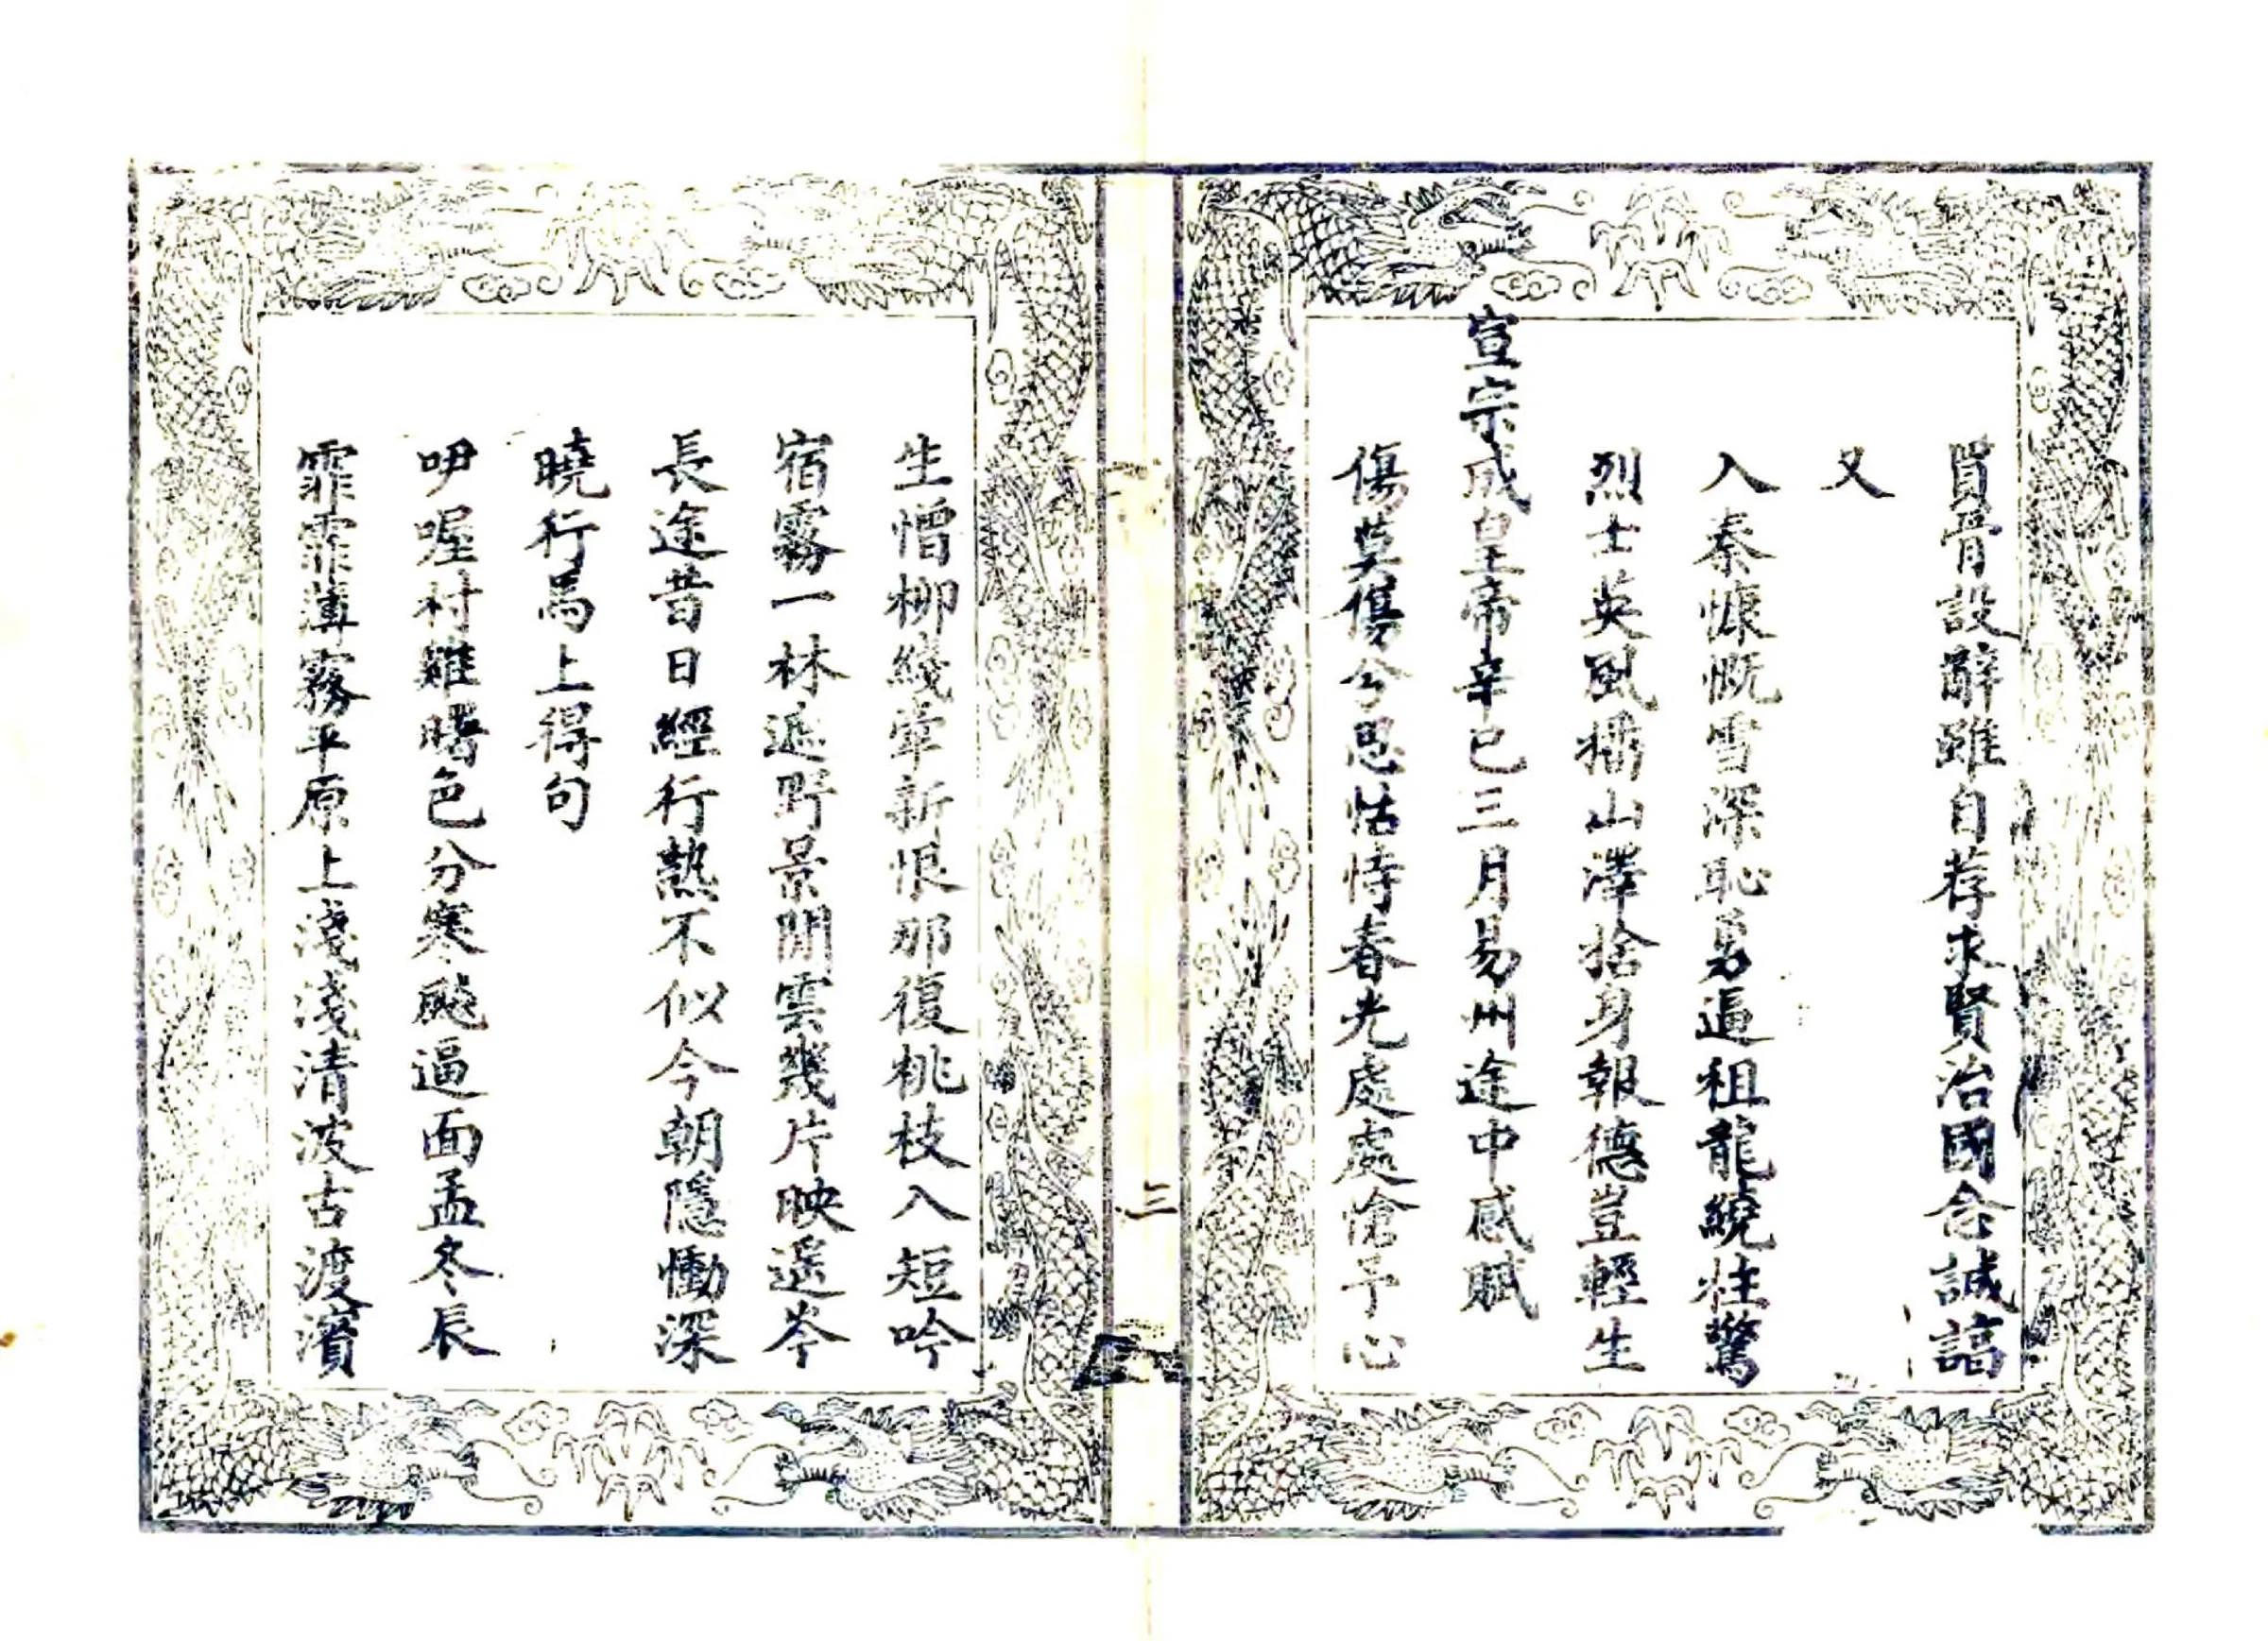 買骨設辭雖自荐求賢治國念誠謟
又
入秦慷慨雪深恥勇逼祖龍繞柱驚
烈士英風播山澤捨身報德豈輕生
宣宗成皇帝辛巳三月易州途中感賦
傷莫傷兮思怙恃春光處處愴予心
三
生憎柳綫牽新恨那復桃枝入短吟
宿霧一林遮野景閒雲幾片映遥岑
長途昔日經行熟不似今朝隱慟深
曉行馬上得句
吚喔村雞曙色分寒颷逼面孟冬辰
霏霏薄霧平原上淺淺清波古渡濱